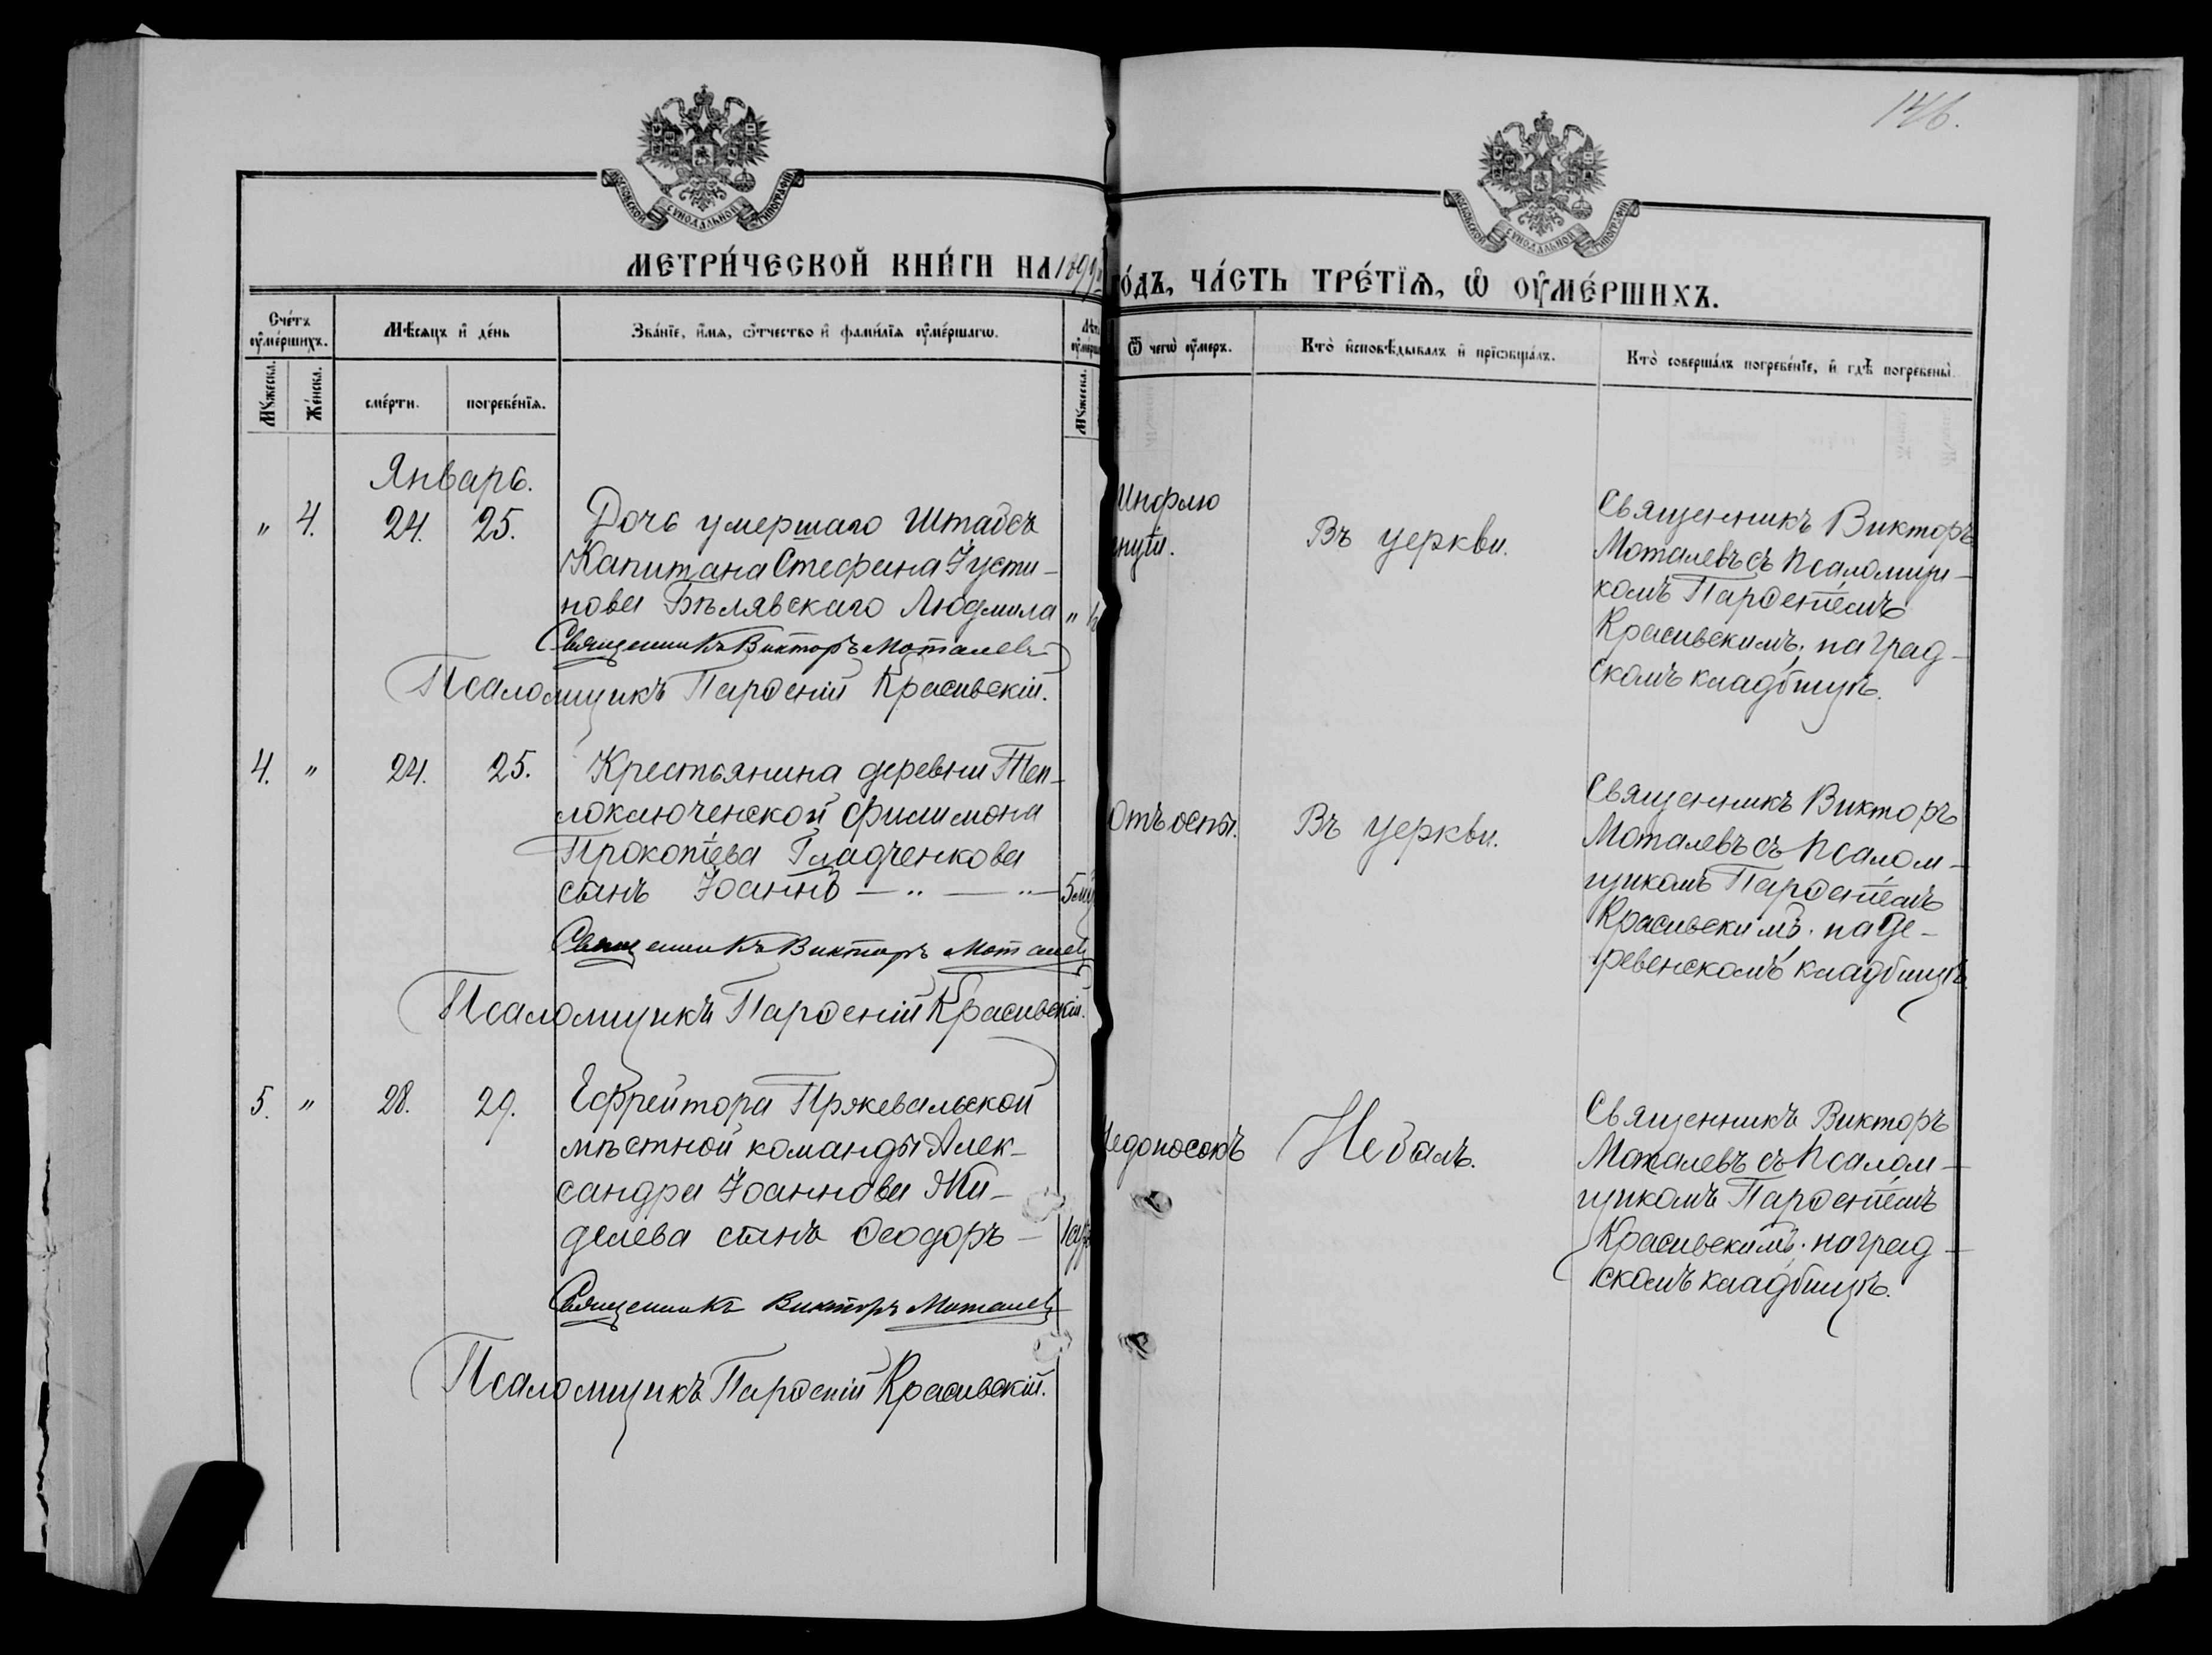 146.
МОСКОВСКОЙ СѴНОДАЛЬНОЙ ТИПОГРАФІИ
МОСКОВСКОЙ СѴНОДАЛЬНОЙ ТИПОГРАФІИ
МЕТРИ́ЧЕСКОЙ КНИ́ГИ НА 1899
ГО́ДЪ, ЧА́СТЬ ТРЕ́ТЇѦ, Ѡ҆ ОУ҆МЕ́РШИХЪ.
Сче́тъ оу҆ме́ршихъ.
Мѣ́сяцъ и҆ де́нь
Зва́нїе, и҆́мѧ, ѻ҆́тчество и҆ фами́лїѧ оу҆ме́ршагѡ.
Ѿ чегѡ̀ оу҆́меръ.
Кто̀ и҆сповѣ́дывалъ и҆ прїѡбща́лъ.
Кто̀ соверша́лъ погребе́нїе, и҆ гдѣ̀ погребены̀.
Мꙋ́жеска.
Же́нска.
сме́рти.
погребе́нїѧ.
Мꙋ́жеска.
Январь.
" 4. 24. 25.
Дочь умершаго Штабсъ
Капитана Стефана Іусти-
нова Бѣлявскаго Людмила "
Священникъ Викторъ Моталевъ
Псаломщикъ Парѳеній Красивскій.
Инфлю
энціи.
Въ церкви.
Священникъ Викторъ
Моталевъ съ псаломщи-
комъ Парѳеніемъ
Красивскимъ, на град-
скомъ кладбищѣ.
4. " 24. 25.
Крестьянина деревни Теп-
лоключенской Филимона
Прокопіева Гладченкова
сынъ Іоаннъ — " — " — 5 мѣ
Священникъ Викторъ Моталевъ
Псаломщикъ Парѳеній Красивскій.
Отъ оспы.
Въ церкви.
Священникъ Викторъ
Моталевъ съ псалом-
щикомъ Парѳеніемъ
Красивскимъ. на де-
ревенскомъ кладбищѣ.
5. " 28. 29.
Ефрейтора Пржевальской
мѣстной команды Алек-
сандра Іоаннова Жи-
делева сынъ Ѳеодоръ —
Священникъ Викторъ Моталевъ
Псаломщикъ Парѳеній Красивскій.
Недоносокъ
Не былъ.
Священникъ Викторъ
Моталевъ съ псалом-
щикомъ Парѳеніемъ
Красивскимъ. на град-
скомъ кладбищѣ.